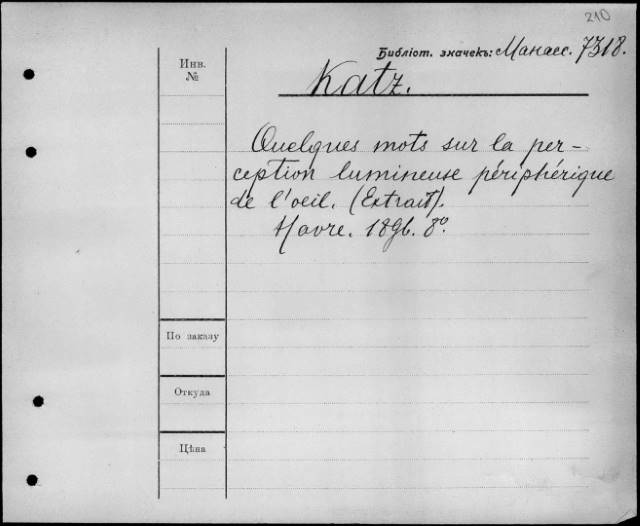 210
Библіот. значекъ: Манасс. 7318.
Инв.
№
Katz.
Quelques mots sur la per-
ception lumineuse périphérique
de l'oeil. (Extrait).
Havre. 1896. 8º.
По заказу
Откуда
Цѣна